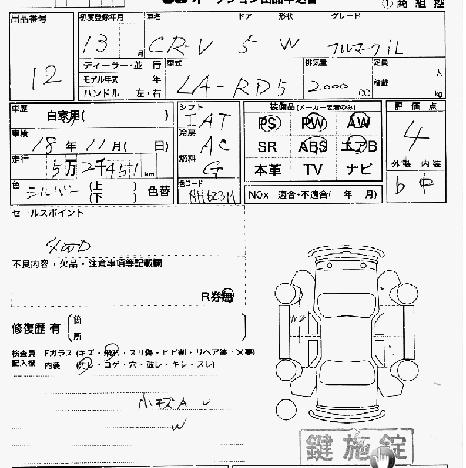 オークション出品申込書
出品番号 初度登録年月 車名 ドア 形状 グレード
12 13 月 CR-V 5 W フルマークiL
ディーラー・並行 型式 排気量 定員 人
モデル年式 年 LA-RD5 2000 cc 積載
ハンドル 左・右 kg
車歴 自家用( ) シフト 装備品(メーカー在庫のみ) 評価点
車検 18年11月( 日) IAT PS PW AW 4
走行 5万2千451 km 冷房 AC SR ABS エアB 外装 内装
燃料 G 本革 TV ナビ b 中
色 シルバー (上 下) 色替 色コード NH623M NOx 適合・不適合( 年 月)
セールスポイント
4WD
不良内容・欠品・注意事項等記載欄
R券
修復歴 有 箇所
検査員記入欄 Fガラス(キズ・飛石・スリ傷・ヒビ割・リペア済・交換)
内装 コゲ・穴・破レ・キレ・スレ)
小キズA
W
鍵施錠